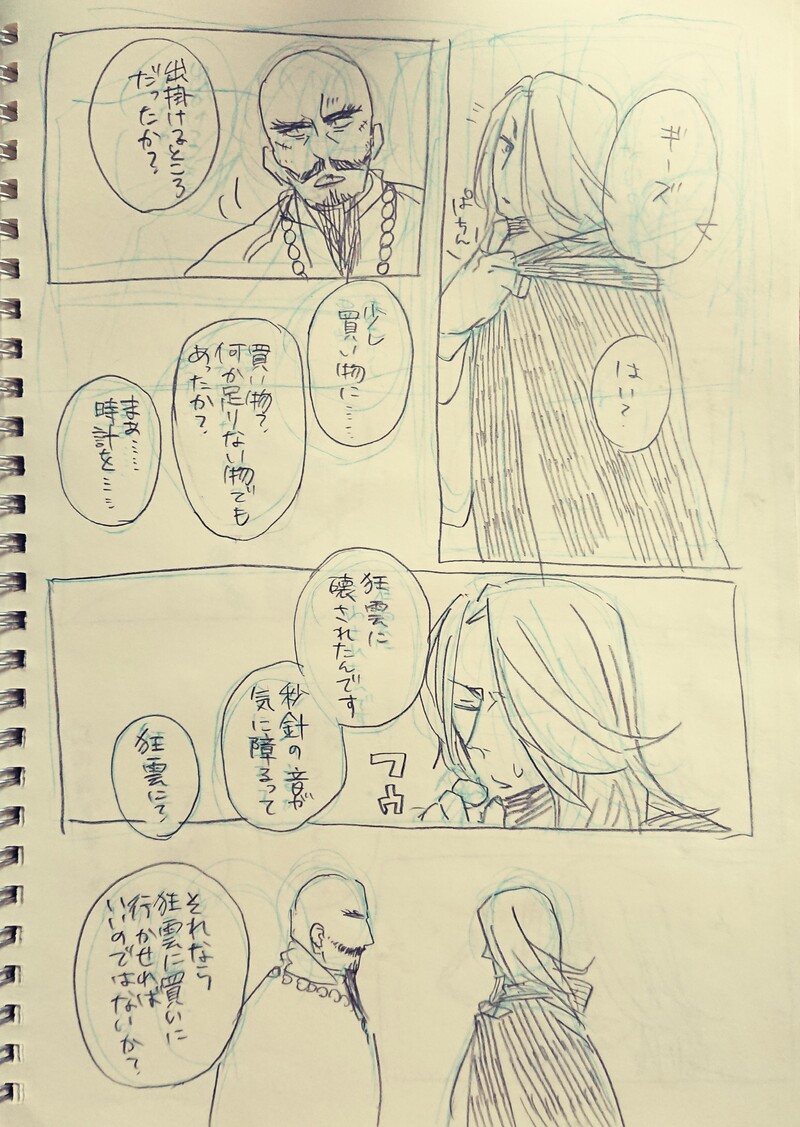 ギーズ
ぱちん
はい？
出掛けるところ
だったか？
少し
買い物に……
買い物？
何か足りない物でも
あったか？
まぁ……
時計を……
狂雲に
壊されたんです
秒針の音が
気に障るって
フゥ
狂雲にて？
それなら
狂雲に買いに
行かせれば
いいのではないか？